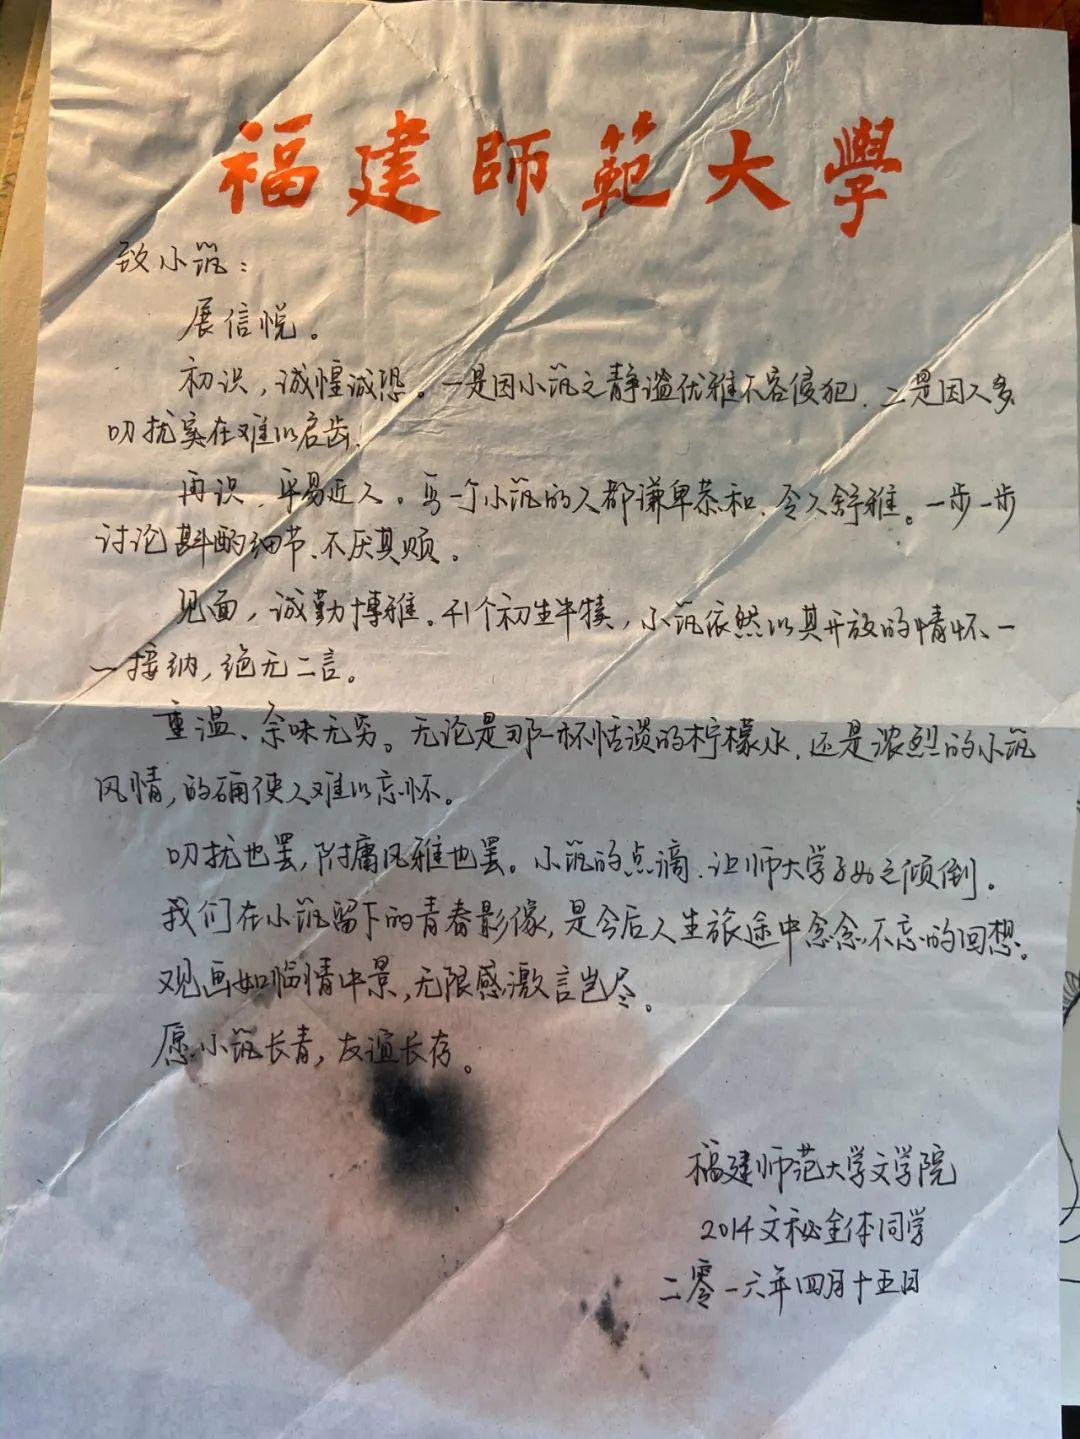 福建師範大學
致小筑：
展信悦。
初识，诚惶诚恐。一是因小筑之静谧优雅不容侵犯，二是因人多
叨扰实在难以启齿。
再识，平易近人。每一个小筑的人都谦卑恭和，令人舒雅。一步一步
讨论斟酌细节、不厌其烦。
见面，诚勤博雅。41个初生牛犊，小筑依然以其开放的情怀一
一接纳，绝无二言。
重温、余味无穷。无论是那一杯恬淡的柠檬水，还是浓烈的小筑
风情，的确使人难以忘怀。
叨扰也罢，附庸风雅也罢。小筑的点滴，让师大学子为之倾倒。
我们在小筑留下的青春影像，是今后人生旅途中念念不忘的回想。
观画如临情中景，无限感激言岂尽。
愿小筑长青，友谊长存。
福建师范大学文学院
2014文秘全体同学
二零一六年四月十五日